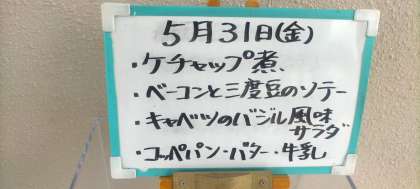 5月31日(金)
・ケチャップ煮
・ベーコンと三度豆のソテー
・キャベツのバジル風味
サラダ
・コッペパン・バター・牛乳